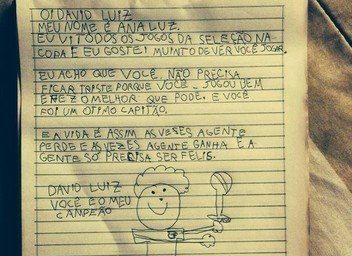 OI DAVID LUIZ
MEU NOME É ANA LUZ.
EU VI TODOS OS JOGOS DA SELEÇÃO NA
COPA E EU GOSTEI MUINTO DE VER VOCÊ JOGAR.
EU ACHO QUE VOCÊ NÃO PRECISA
FICAR TRISTE PORQUE VOCÊ JOGOU BEM
E FEZ O MELHOR QUE PODE, E VOCÊ
FOI UM OTIMO CAPITÃO.
E A VIDA É ASSIM AS VESES AGENTE
PERDE E AS VEZES AGENTE GANHA E A
GENTE SÓ PRECISA SER FELIS.
DAVID LUIZ
VOCÊ É O MEU
CAMPEÃO